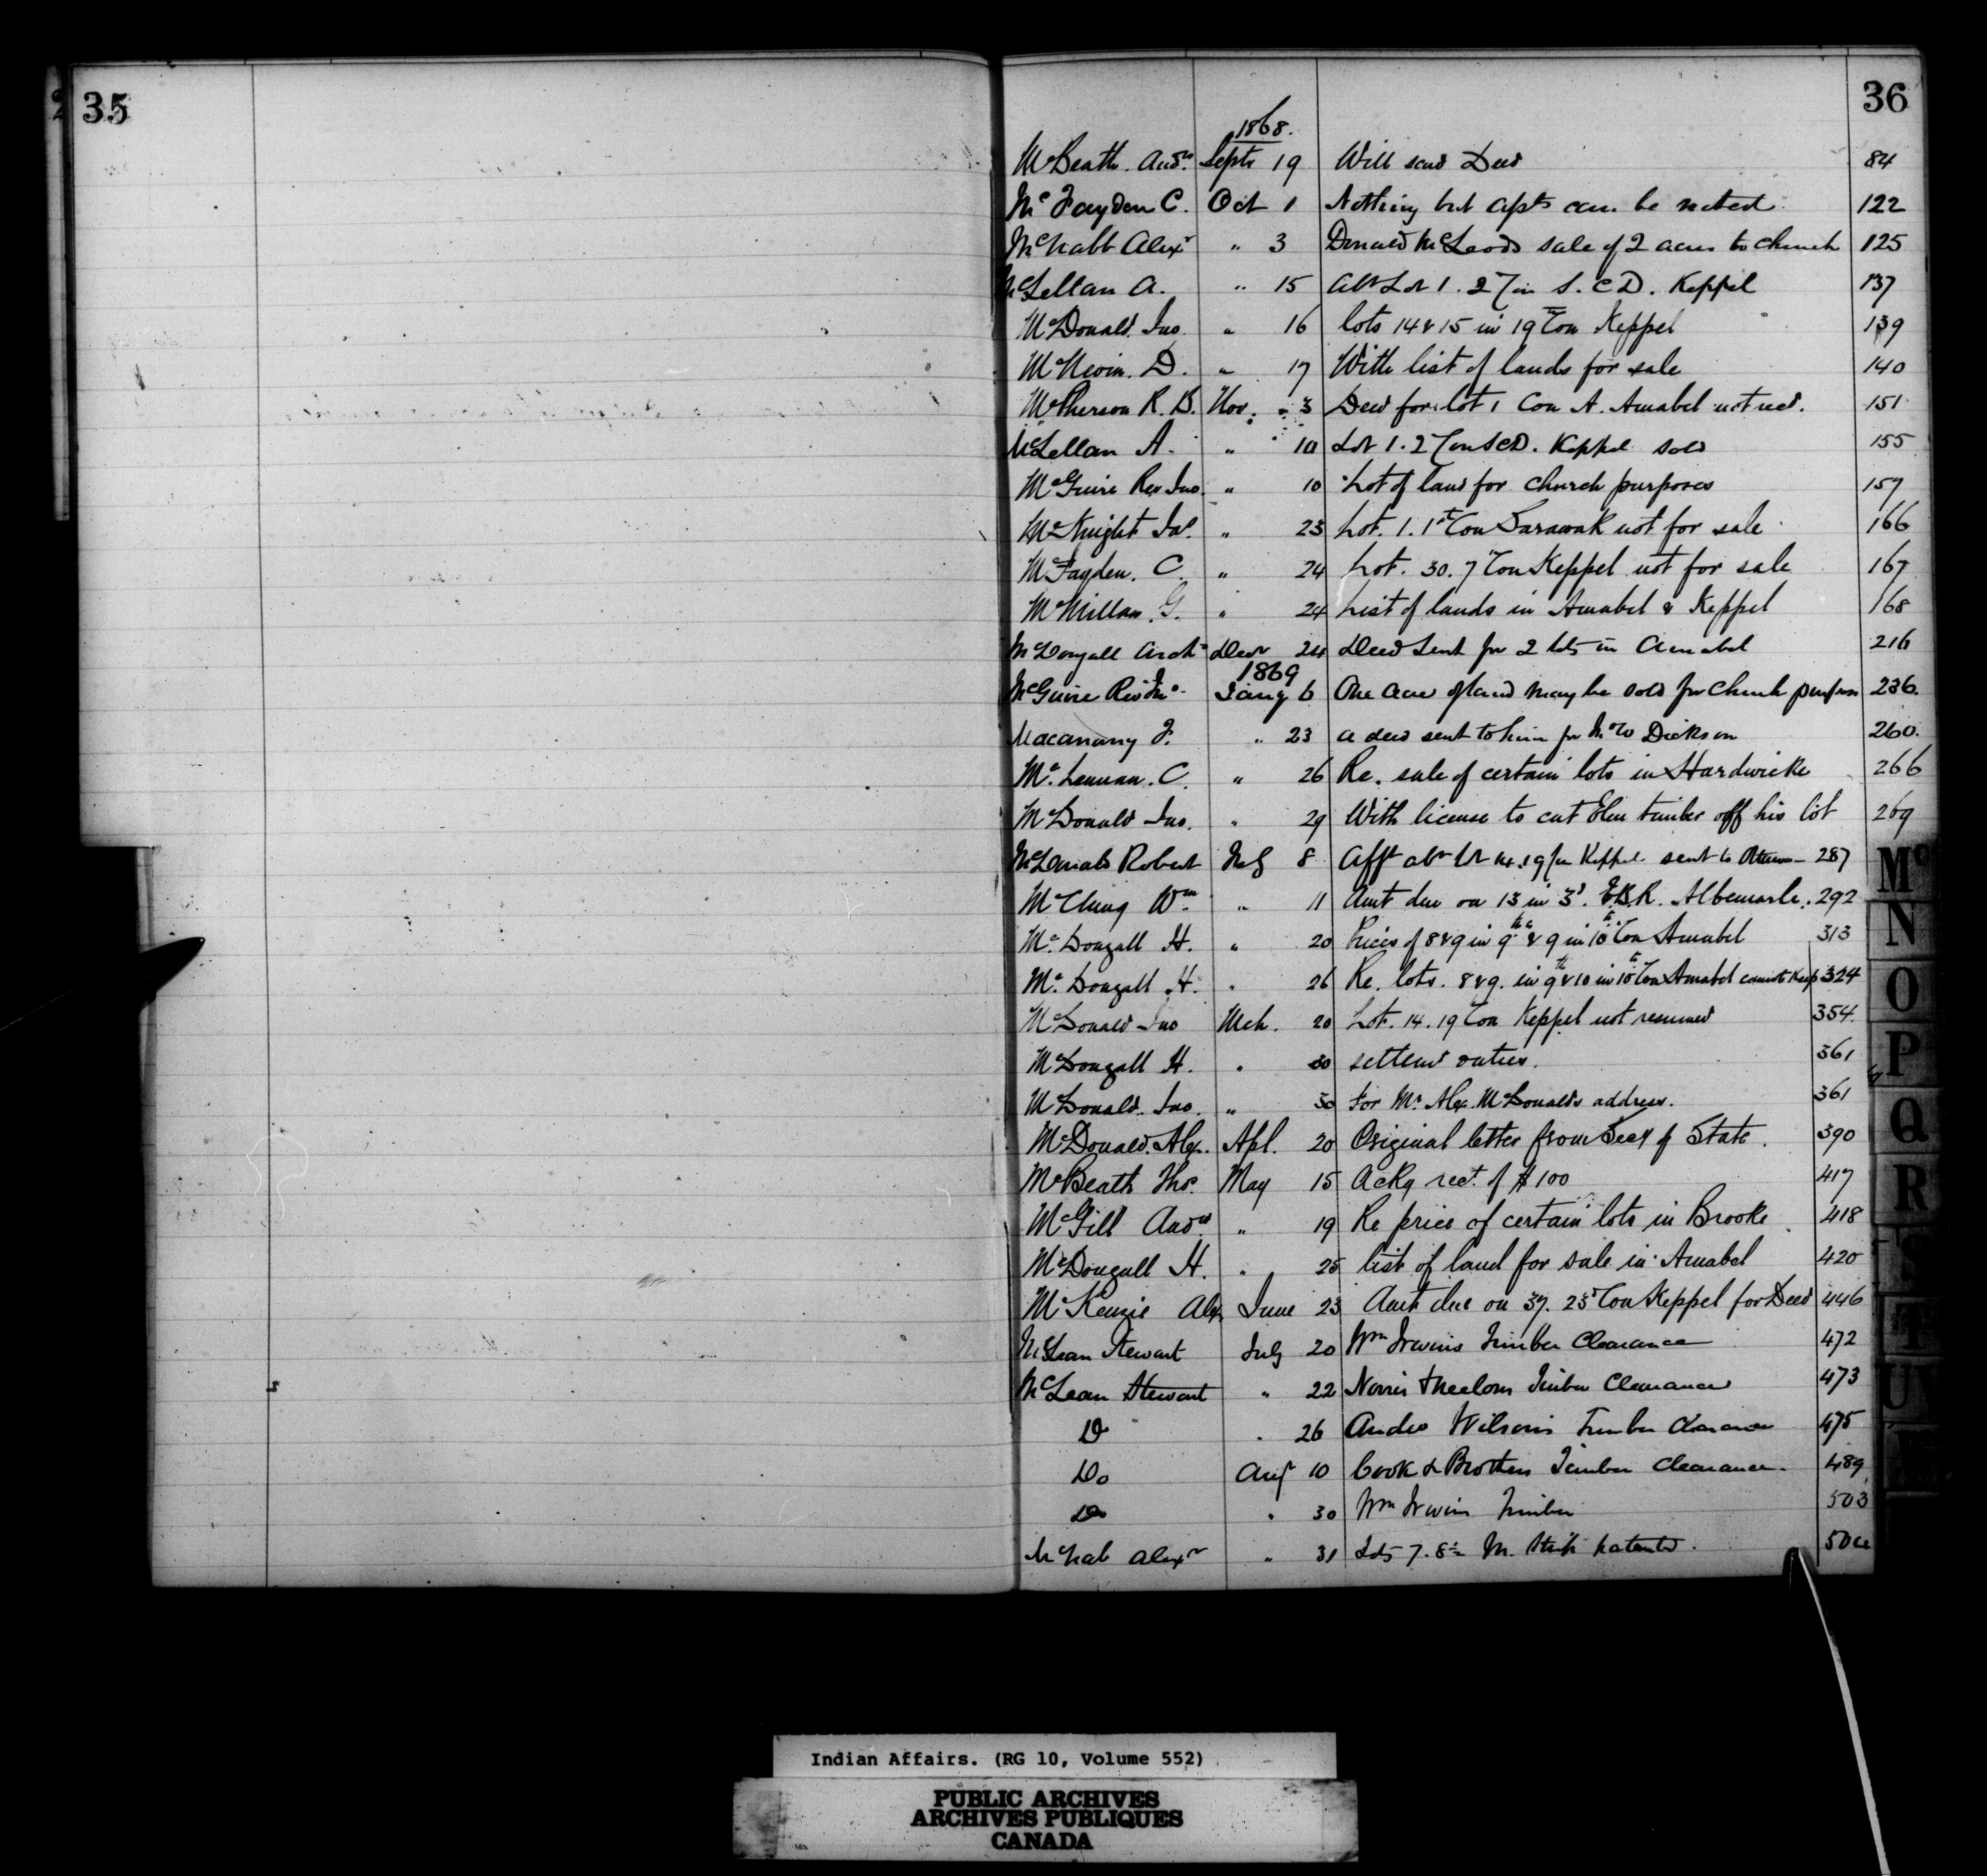 35
36
1868.
McBeath. Andw. Septr 19 Will send Deed 84
McFayden C. Oct 1 Nothing but apts can be noted 122
McNabb Alexr " 3 Donald McLeods sale of 2 acres to church 125
McLellan A. " 15 Abt Lot 1. 2 Con S. C D. Keppel 137
McDonald. Jno. " 16 lots 14 & 15 in 19th Con Keppel 139
McNevin. D. " 17 With list of lands for sale 140
McPherson R. B. Nov. " 3 Deed for lot 1 Con A. Amabel not recd. 151
McLellan A. " 10 Lot 1. 2 Con SCD. Keppel sold 155
McGuire Rev Jno. " 10 Lot of land for church purposes 157
McKnight Jas. " 23 Lot. 1. 1st Con Sarawak not for sale 166
McFayden. C. " 24 Lot. 30. 7 Con Keppel not for sale 167
McMillan. G. " 24 List of lands in Amabel & Keppel 168
McDougall Archd Decr 24 Deed sent for 2 lots in Amabel 216
1869
McGuire Rev Jno. Jany 6 One acre of land may be sold for church purposes 236.
Macanany F. " 23 a deed sent to him for Dickson 260.
Mc. Lennan. C. " 26 Re. sale of certain lots in Hardwicke 266
McDonald Jno. " 29 With license to cut Elm timber off his lot 269
McDonald Robert Feb 8 Afft abt lot 14. 19 Con Keppel sent to Ottawa 287
McClung Wm " 11 Amt due on 13 in 3d. E.B.R. Albemarle. 292
Mc. Dougall H. " 20 Prices of 8 & 9 in 9th & 9 in 10th Con Amabel 313
Mc. Dougall H. " 26 Re. lots. 8 & 9. in 9th & 10 in 10th Con Amabel cannot keep 324
McDonald Jno Mch. 20 Lot. 14. 19 Con Keppel not resumed 354.
McDougall H. " 30 settlemt duties. 361
McDonald. Jno. " 30 For Mr. Alex. McDonalds address. 361
McDonald. Alex. Apl. 20 Original letter from Secy of State. 390
McBeath Thos. May 15 Ackg rect. of $100 417
McGill Andw. " 19 Re price of certain lots in Brooke. 418
McDougall H. " 25 list of land for sale in Amabel 420
McKenzie Alex June 23 Amt due on 37. 23d Con Keppel for Deed 446
McLean Stewart July 20 Wm Irwins Timber Clearance 472
McLean Stewart " 22 Norris & Neelons Timber Clearance 473
Do " 26 Andw Wilsons Timber Clearance 475
Do Augt 10 Cook & Brothers Timber Clearance. 489
Do " 30 Wm Irwins Timber 503
McNab Alexr " 31 Lots 7. 8 M. Strip patented. 506
Mc
N
O
P
Q
R
S
T
U
Indian Affairs. (RG 10, Volume 552)
PUBLIC ARCHIVES
ARCHIVES PUBLIQUES
CANADA